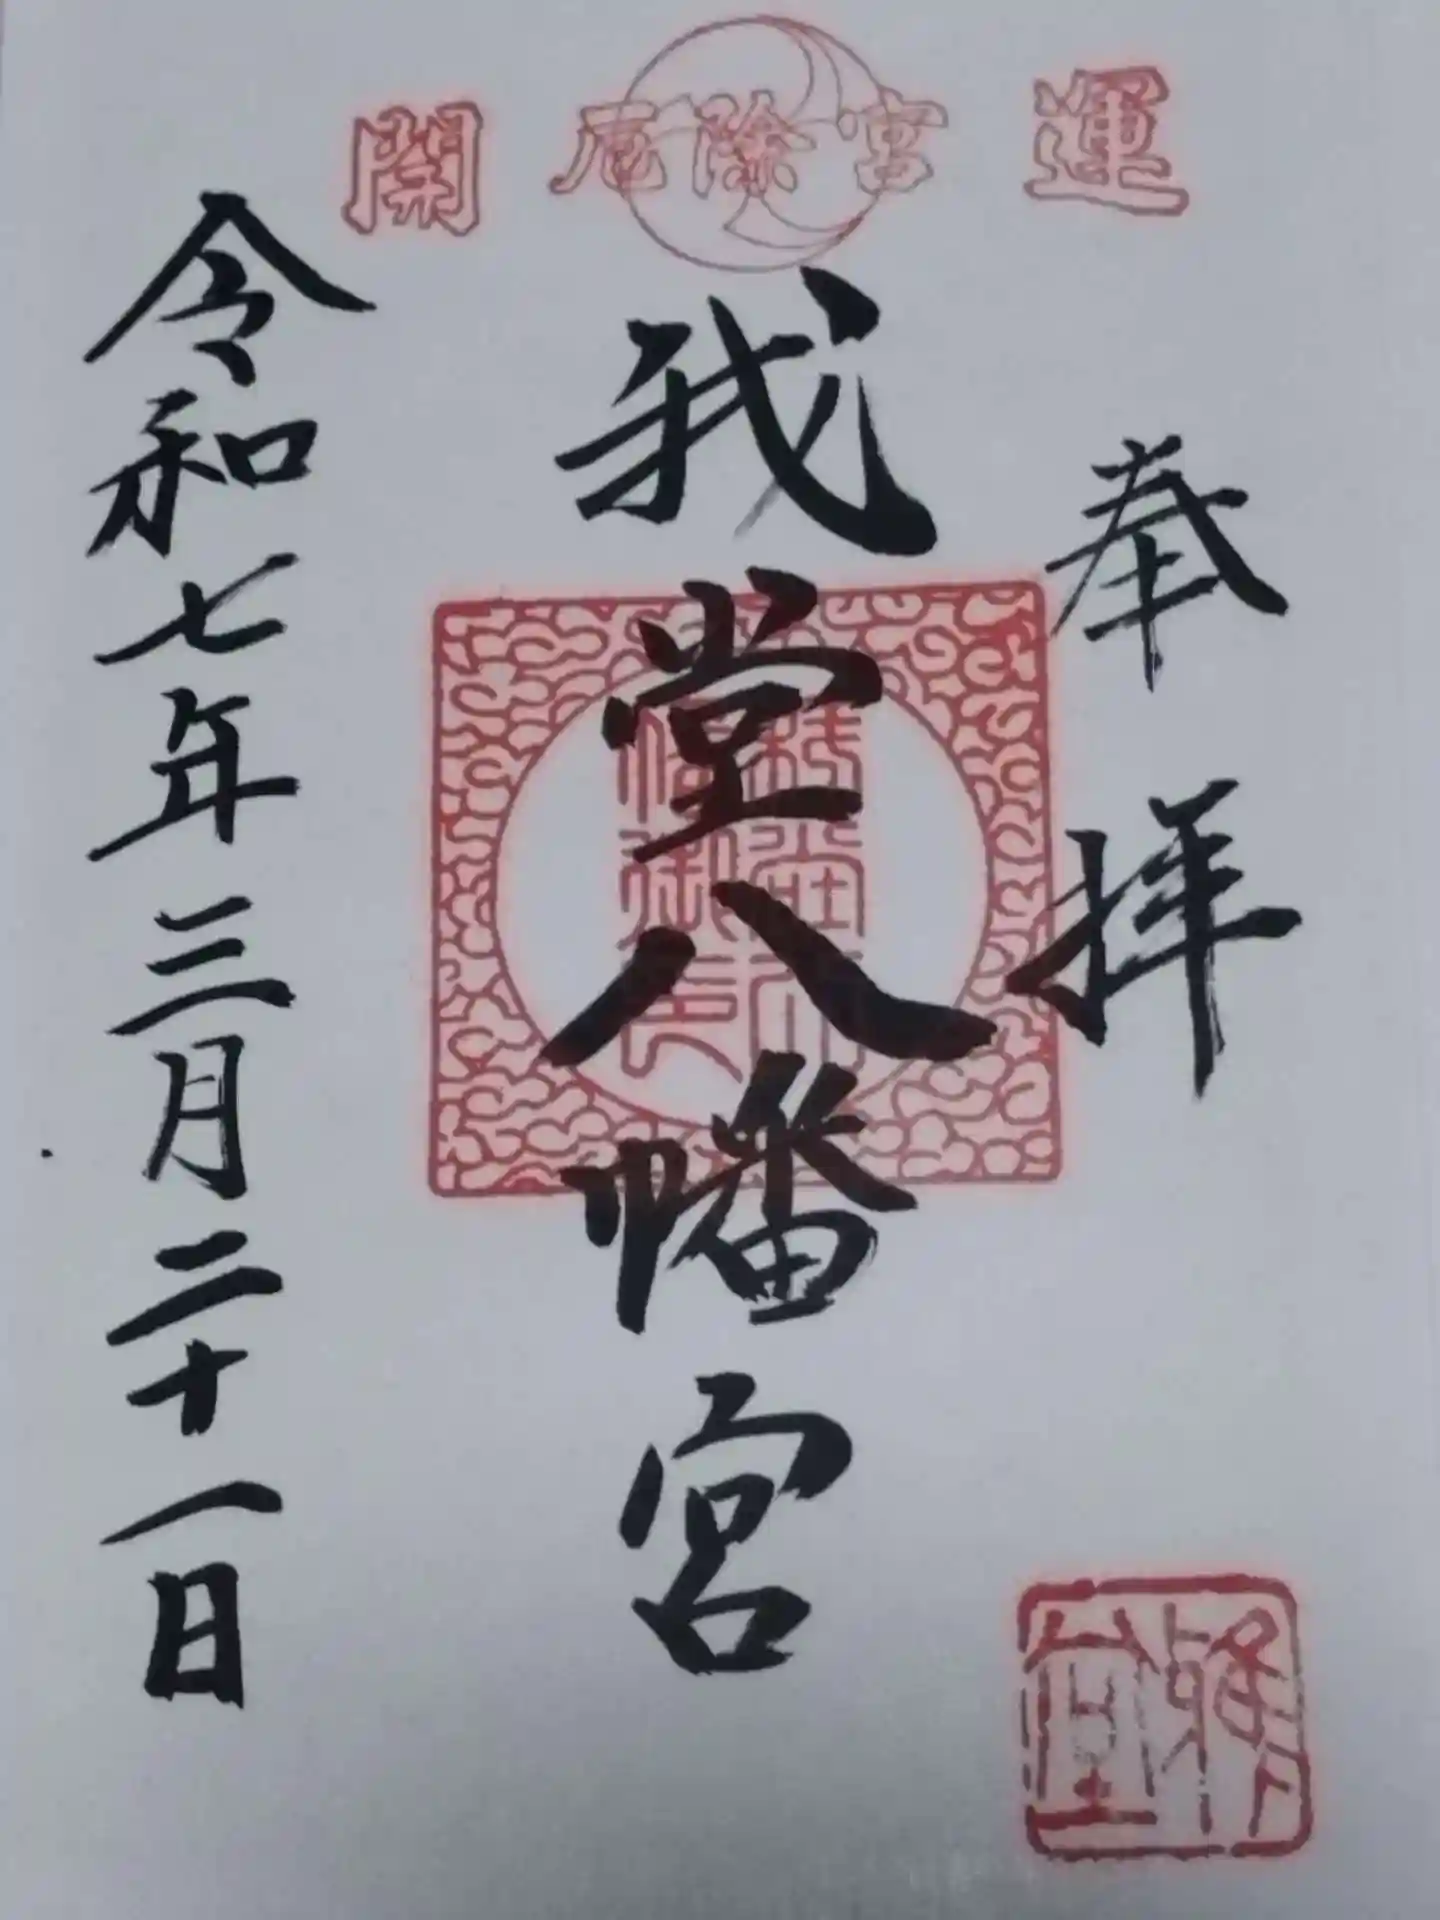 開 厄除宮 運
奉拝
我堂八幡宮
令和七年三月二十一日